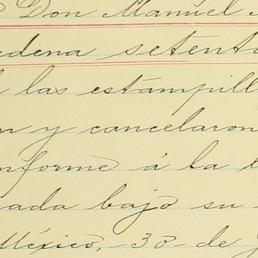 Don Manuel
edena setento
las estampill
n y cancelaron
nforme á la l
ada bajo su
México, 30 de J